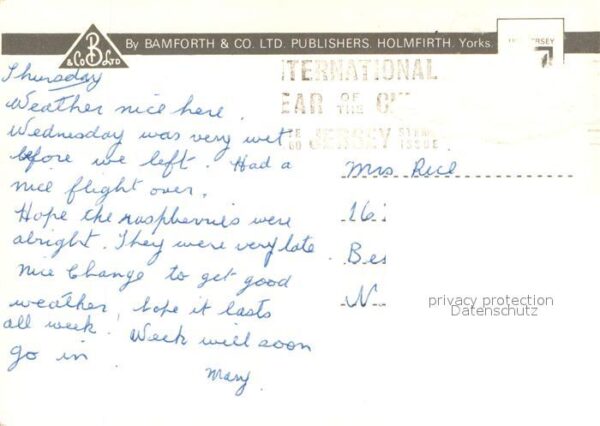 B
& Co LTD
By BAMFORTH & CO. LTD. PUBLISHERS. HOLMFIRTH. Yorks.
JERSEY
INTERNATIONAL
YEAR OF THE
JERSEY STAMP
ISSUE
Thursday
Weather nice here.
Wednesday was very wet
before we left. Had a
nice flight over.
Hope the raspberries were
alright. They were very late.
Nice change to get good
weather, hope it lasts
all week. Week will soon
go in.
Mary.
Mrs Rice
16
Bes
N
privacy protection
Datenschutz